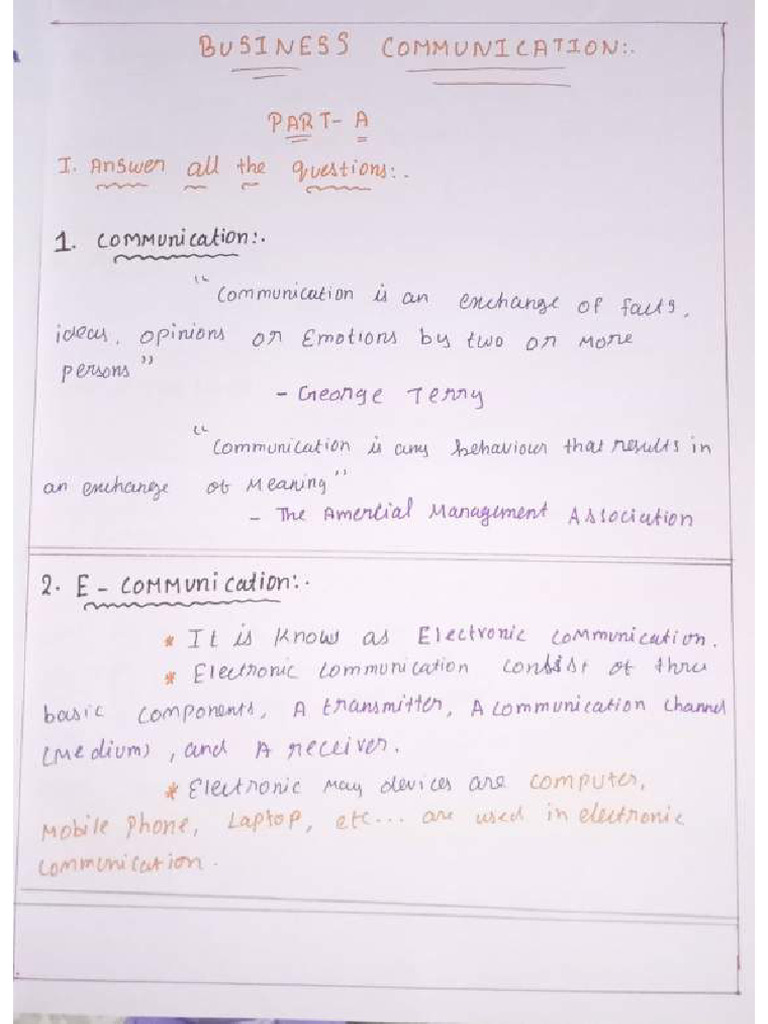 BUSINESS COMMUNICATION:.
PART-A
I. Answer all the questions:.
1. Communication:.
"Communication is an exchange of facts,
ideas, opinions or Emotions by two or More
persons"
- George Terry
"Communication is any behaviour that results in
an exchange of Meaning"
- The Amercial Management Association
2. E-Communication:.
* It is know as Electronic Communication.
* Electronic Communication consist of thre
basic components, A transmitter, A communication channel
(Medium), and A receiver.
* Electronic may devices are computer,
Mobile Phone, Laptop, etc... are used in electronic
communication.